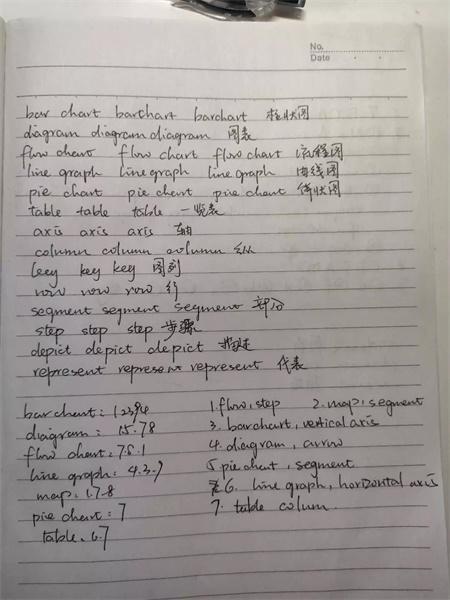 No.
Date
bar chart barchart barchart 柱状图
diagram diagram diagram 图表
flow chart flow chart flow chart 流程图
line graph line graph line graph 曲线图
pie chart pie chart pie chart 饼状图
table table table 一览表
axis axis axis 轴
column column column 纵
key key key 图列
row row row 行
segment segment segment 部分
step step step 步骤
depict depict depict 描述
represent represent represent 代表
barchart: 1 2 3
diagram: 1.5.78
flow chart: 7.6.1
line graph: 4.3.
map: 1.7.8
pie chart: 7
table. 6.7
1.flow, step 2. map, segment
3. barchart, vertical axis
4. diagram, arrow
5 pie chart, segment
6. line graph, horizontal axis
7. table colum.